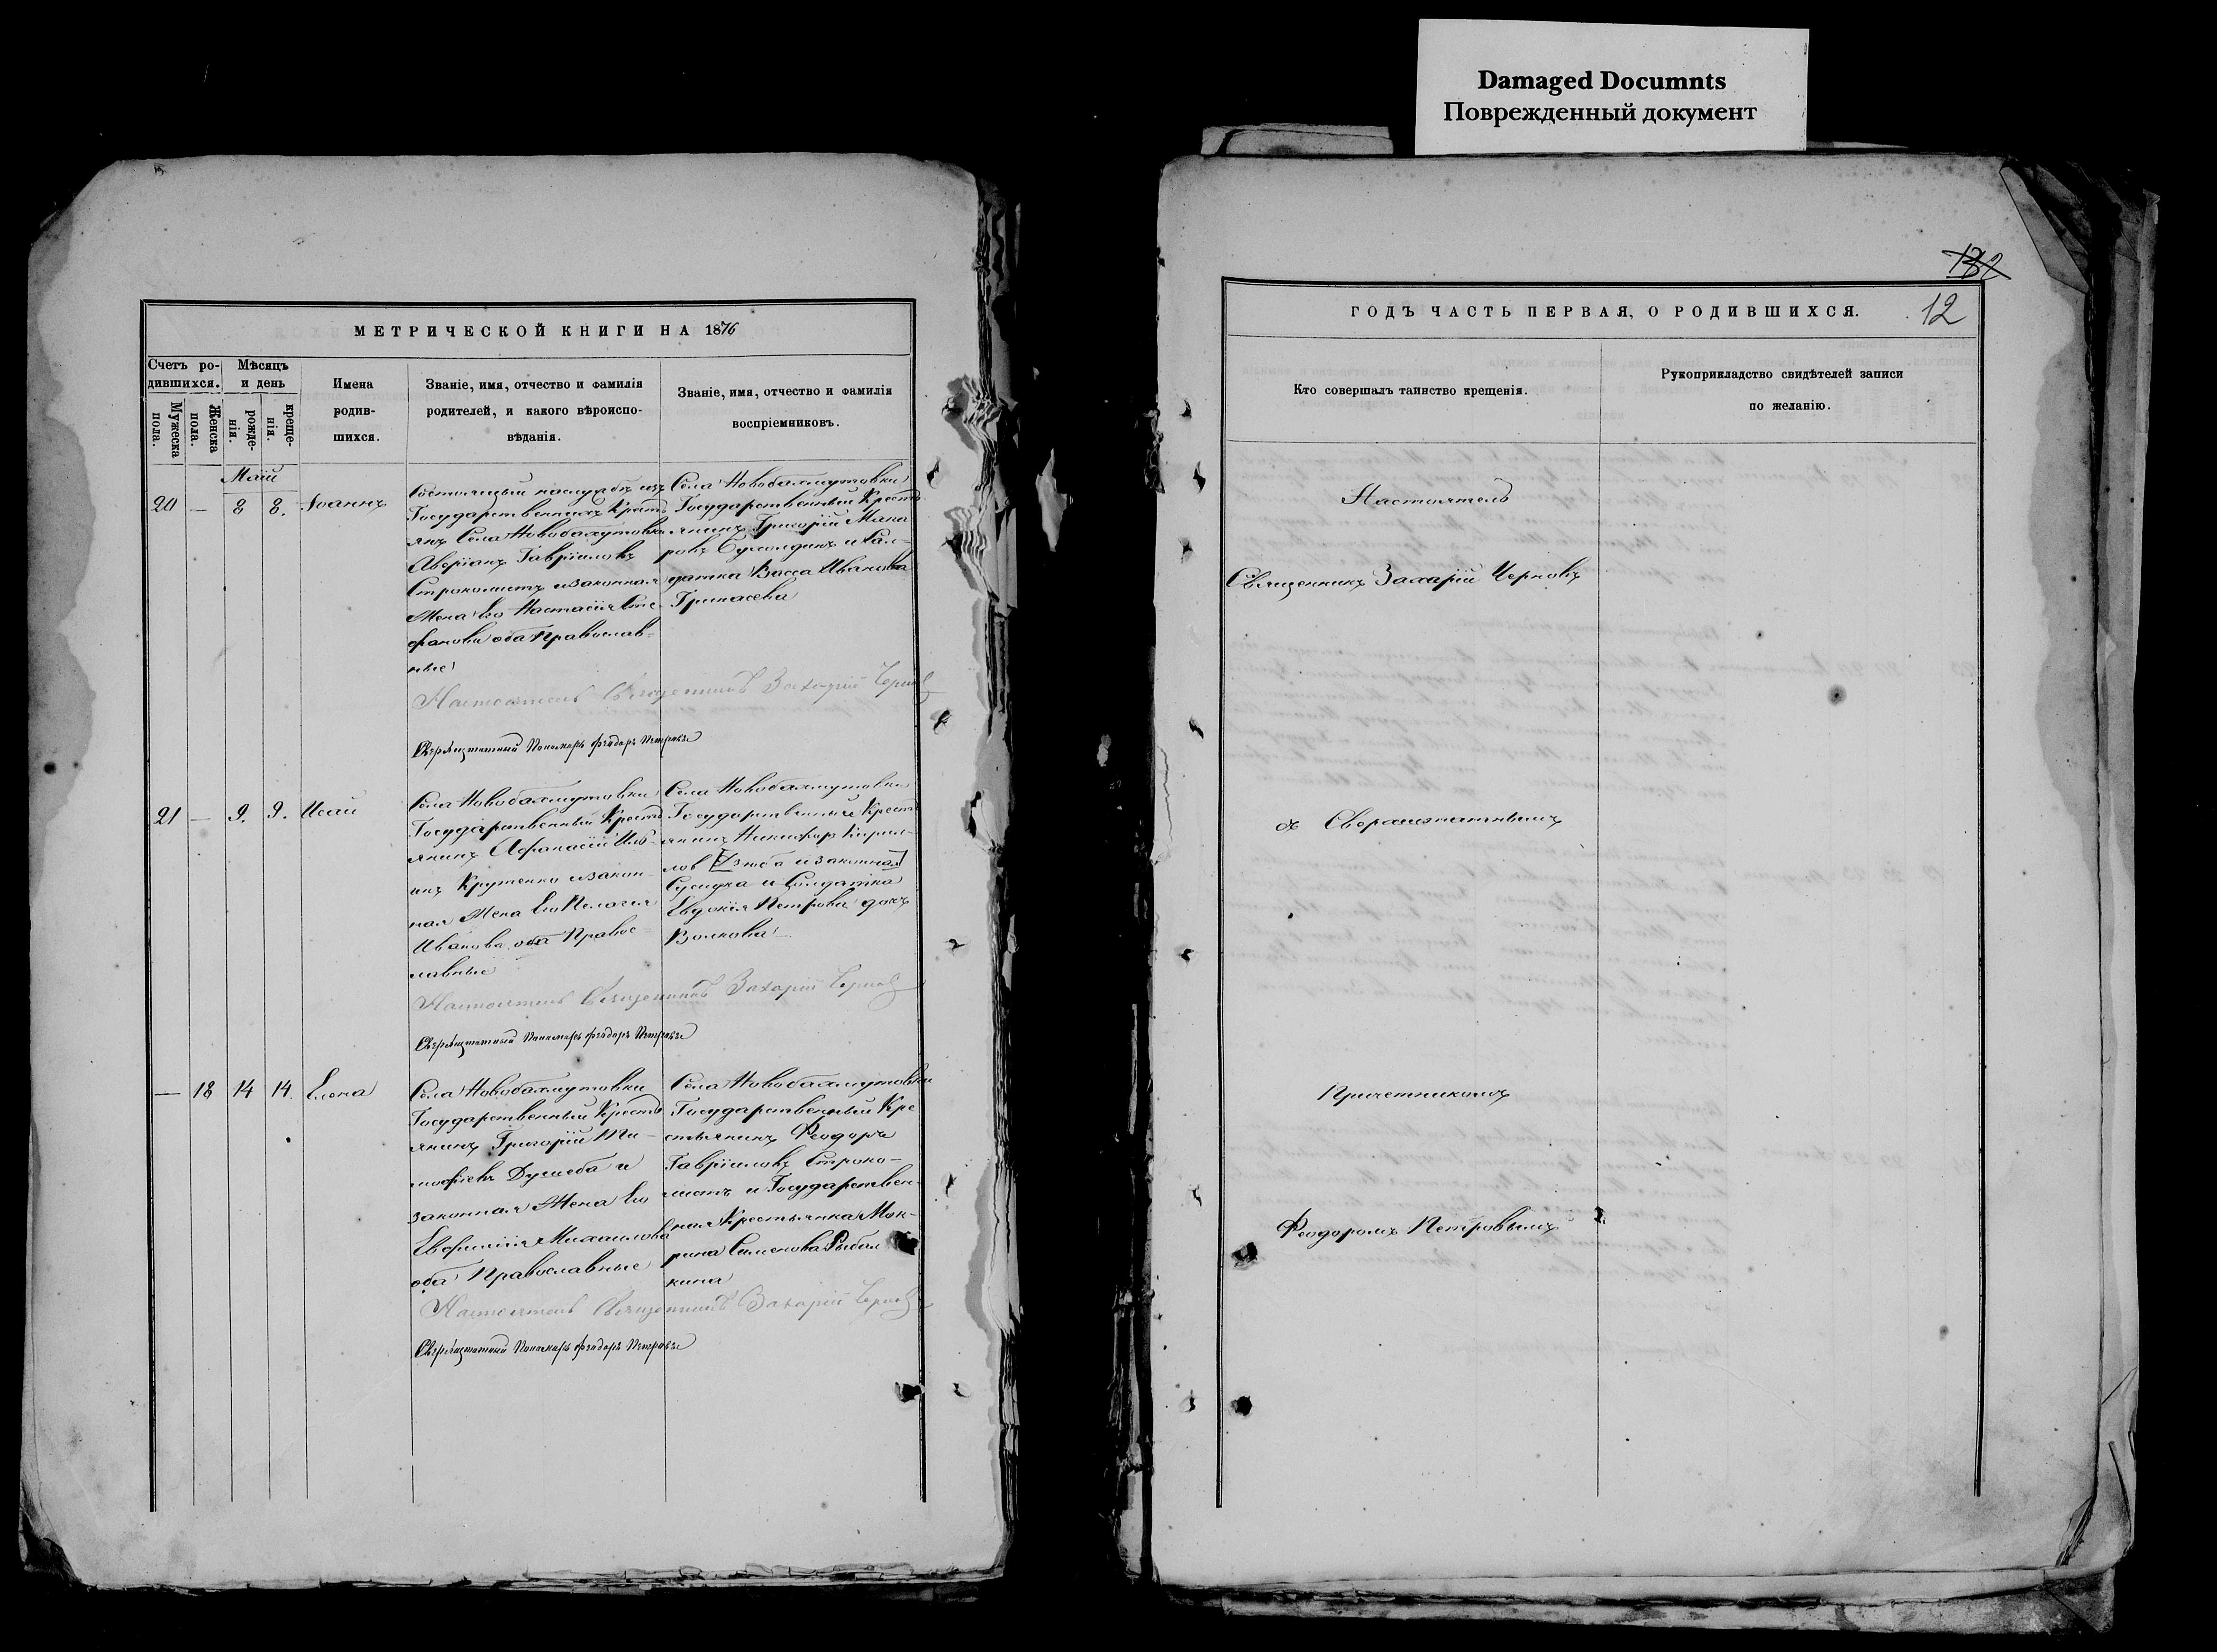 Damaged Documnts
Поврежденный документ
МЕТРИЧЕСКОЙ КНИГИ НА 1876
Счетъ ро-
дившихся.
Мужеска
пола.
Женска
пола.
Мѣсяцъ
и день
рожде-
нія.
креще-
нія.
Имена
родив-
шихся.
Званіе, имя, отчество и фамилія
родителей, и какого вѣроиспо-
вѣданія.
Званіе, имя, отчество и фамилія
воспріемниковъ.
Маій
20 — 8 8. Іоаннъ
Состоящый наслужбѣ изъ
Государственныхъ Крестъ
янъ Села Новобахмутовки
Аверіанъ Гавріиловъ
Строкомистъ изаконная
Жена Его Настасія Сте
фанова оба Православ-
ные
Села Новобахмутовки
Государственный Кресть
янинъ Григорій Мака
ровъ и Сал-
датка Васса Иванова
Настоятель Священникъ Захарій Черновъ
Сверхштатный Пономарь Феодоръ Петровъ
21 — 9. 9. Исаи
Села Новобахмутовки
Государственный Кресть
янинъ Афанасій Иль-
инъ Крутенко изакон-
ная Жена Его Пелагия
Иванова оба Правос-
лавные
Села Новобахмутовки
Государственные Кресть
янинъ Никифоръ Кирил-
лов [Дзюба изаконная]
и Солдатка
Евдокія Петрова дочь
Волкова
Настоятель Священникъ Захарій Черновъ
Сверхштатный Пономарь Феодоръ Петровъ
— 18 14 14. Елена
Села Новобахмутовки
Государственный Кресть
янинъ Григорій Ти-
мофіевъ и
законная Жена Его
Евфимія Михаилова
оба Православные
Села Новобахмутовки
Государственный Кре
стьянинъ Феодоръ
Гавріиловъ Строко-
мистъ и Государствен-
ная Крестьянка Мок-
рина Сименова Рыбал
кина
Настоятель Священникъ Захарій Черновъ
Сверхштатный Пономарь Феодоръ Петровъ
132
12
ГОДЪ ЧАСТЬ ПЕРВАЯ, О РОДИВШИХСЯ.
Кто совершалъ таинство крещенія.
Рукоприкладство свидѣтелей записи
по желанію.
Настоятель
Священникъ Захарій Черновъ
съ Сверхштатнымъ
Причетникомъ
Феодоромъ Петровымъ